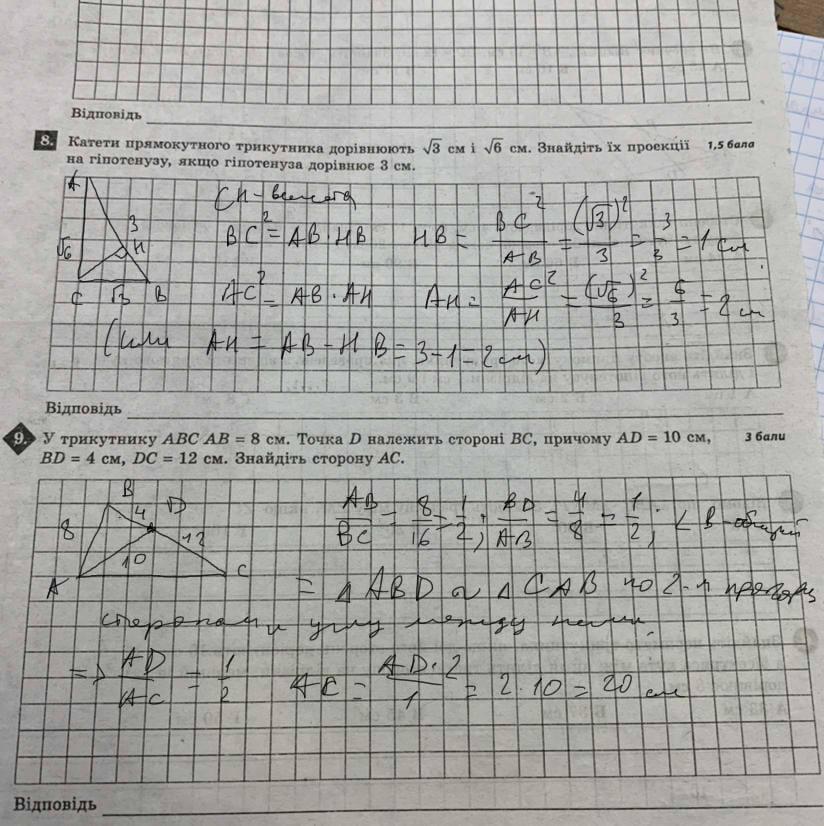 Відповідь
8. Катети прямокутного трикутника дорівнюють √3 см і √6 см. Знайдіть їх проекції 1,5 бала
на гіпотенузу, якщо гіпотенуза дорівнює 3 см.
A
3
H
√6
C √3 B
CH - высота
BC² = AB · HB HB = BC²/AB = (√3)²/3 = 3/3 = 1 см
AC² = AB · AH AH = AC²/AH = (√6)²/3 = 6/3 = 2 см
(или AH = AB - HB = 3 - 1 = 2 см)
Відповідь
9. У трикутнику ABC AB = 8 см. Точка D належить стороні BC, причому AD = 10 см, 3 бали
BD = 4 см, DC = 12 см. Знайдіть сторону AC.
B
4 D
8 12
10
A C
AB/BC = 8/16 = 1/2; BD/AB = 4/8 = 1/2; ∠B - общий
= △ABD ~ △CAB по 2-м пропорц
сторонам и углу между ними.
=> AD/AC = 1/2 AC = AD·2/1 = 2·10 = 20 см
Відповідь